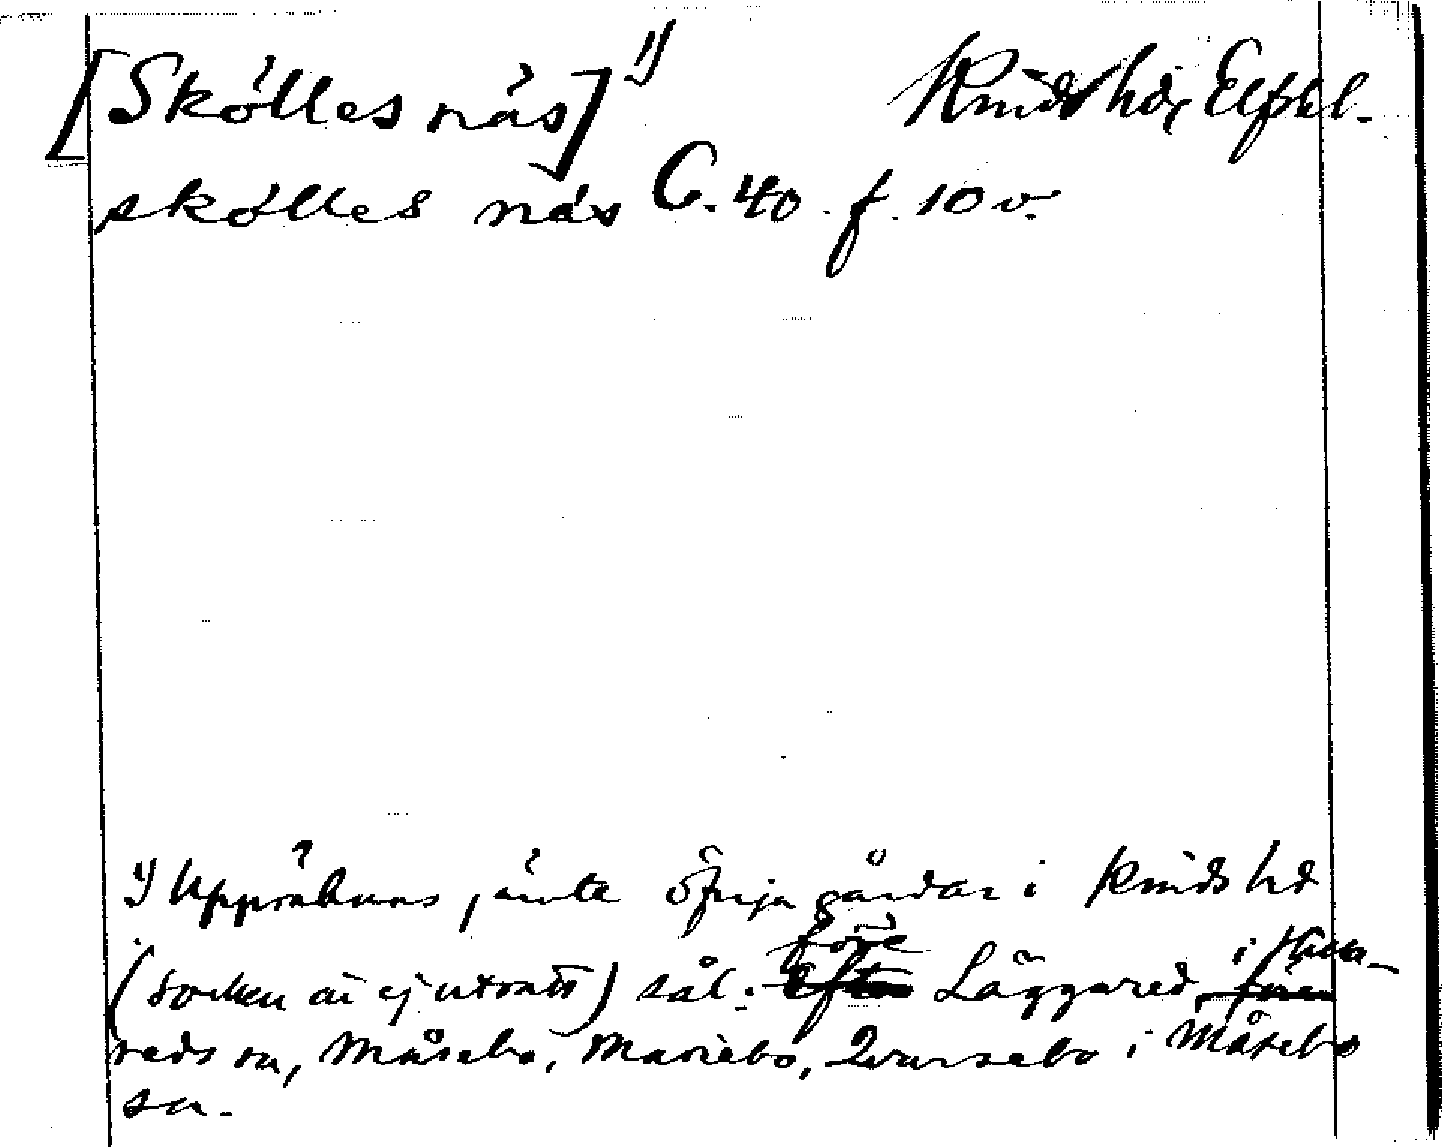 [Skölles näs] 1) Kinds hd, Elfsbl.
skölles näs C. 40. f. 10 v.
1) Uppräknas jämte öfriga gårdar i Kinds hd
(socken är ej utsatt) sål. före Läggared, i Kalf-
reds sn, Måsebo, Mariebo, Qvarsebo i Måsebo
sn.